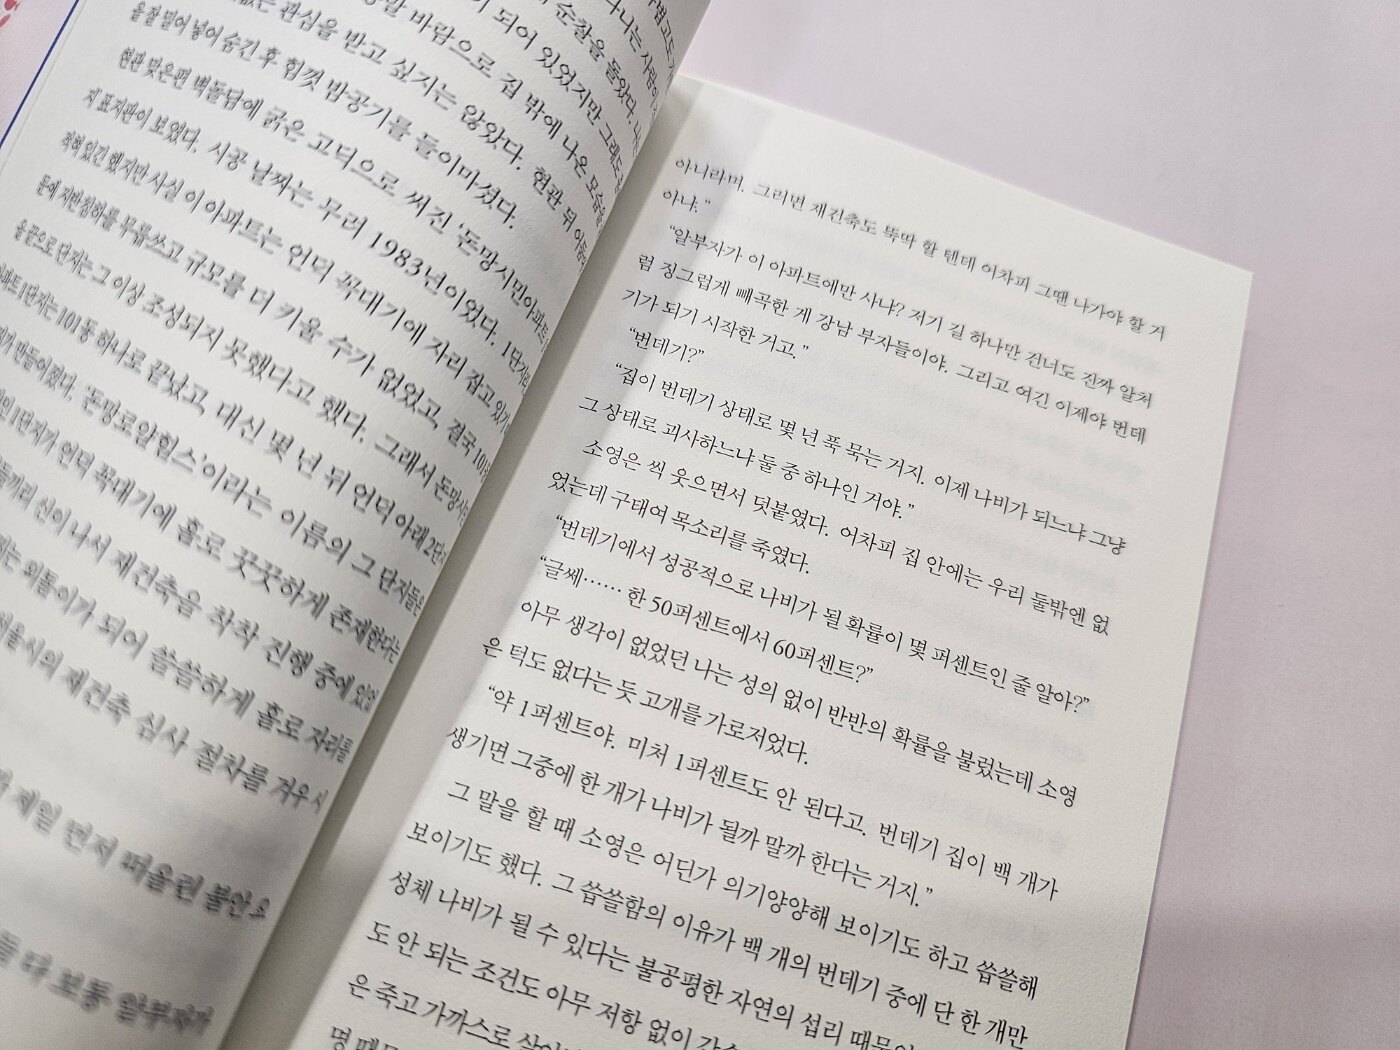 없는 관심을 받고 싶지는 않았다. 현관 뒤
을 잘 밀어 넣어 숨긴 후 힘껏 밤공기를 들이마셨다.
현관 맞은편 벽돌담에 굵은 고딕으로 써진 ‘돈망시민아파트
지 표지판이 보였다. 시공 날짜는 무려 1983년이었다. 1단지
적혀 있긴 했지만 사실 이 아파트는 언덕 꼭대기에 자리 잡고 있
문에 지반침하를 무릅쓰고 규모를 더 키울 수가 없었고, 결국 101동
을 끝으로 단지는 그 이상 조성되지 못했다고 했다. 그래서 돈망시
1단지는 101동 하나로 끝났고, 대신 몇 년 뒤 언덕 아래 2단지
가 만들어졌다. ‘돈망로얄힐스’이라는 이름의 그 단지들은
1단지가 언덕 꼭대기에 홀로 꿋꿋하게 존재한다는
신이 나서 재건축을 착착 진행 중에 있었
외톨이가 되어 쓸쓸하게 홀로 자리를
재건축 심사 절차를 겨우 시
제일 먼저 떠올린 불안소
다 보통 알부자가
아니라며. 그러면 재건축도 뚝딱 할 텐데 어차피 그땐 나가야 할 거
아냐.”
“알부자가 이 아파트에만 사냐? 저기 길 하나만 건너도 진짜 알처
럼 징그럽게 빼곡한 게 강남 부자들이야. 그리고 여긴 이제야 번데
기가 되기 시작한 거고.”
“번데기?”
“집이 번데기 상태로 몇 년 푹 묵는 거지. 이제 나비가 되느냐 그냥
그 상태로 괴사하느냐 둘 중 하나인 거야.”
소영은 씩 웃으면서 덧붙였다. 어차피 집 안에는 우리 둘밖엔 없
었는데 구태여 목소리를 죽였다.
“번데기에서 성공적으로 나비가 될 확률이 몇 퍼센트인 줄 알아?”
“글쎄…… 한 50퍼센트에서 60퍼센트?”
아무 생각이 없었던 나는 성의 없이 반반의 확률을 불렀는데 소영
은 턱도 없다는 듯 고개를 가로저었다.
“약 1퍼센트야. 미처 1퍼센트도 안 된다고. 번데기 집이 백 개가
생기면 그중에 한 개가 나비가 될까 말까 한다는 거지.”
그 말을 할 때 소영은 어딘가 의기양양해 보이기도 하고 씁쓸해
보이기도 했다. 그 씁쓸함의 이유가 백 개의 번데기 중에 단 한 개만
성체 나비가 될 수 있다는 불공평한 자연의 섭리 때문
도 안 되는 조건도 아무 저항 없이
은 죽고 가까스로